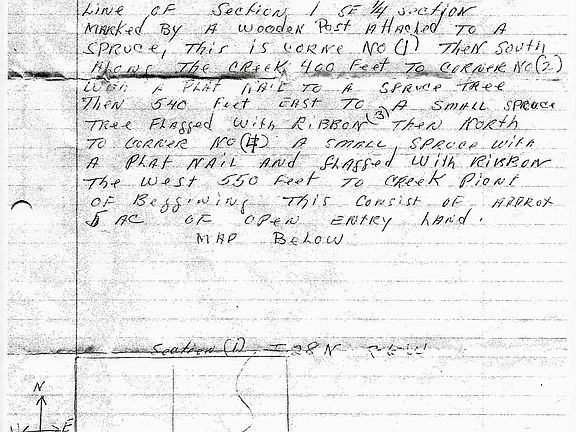 LINE OF Section 1 SE 1/4 section
MARKED BY A WOODEN POST Attached TO A
SPRUCE, THIS IS CORNE NO (1) THEN SOUTH
Along THE CREEK 400 FEET TO CORNER NO (2)
A PLAT NAIL TO A SPRUCE TREE
THEN 540 FEET EAST TO A SMALL SPRUCE
TREE FLAGGED WITH RIBBON (3) THEN NORTH
TO CORNER NO (4) A SMALL SPRUCE WITH
A PLAT NAIL AND FLAGGED WITH RIBBON
THE WEST 550 FEET TO CREEK PIONT
OF BEGGINING THIS CONSIST OF APPROX
5 AC OF OPEN ENTRY LAND.
MAP BELOW
Section (1) T 28 N
N
E